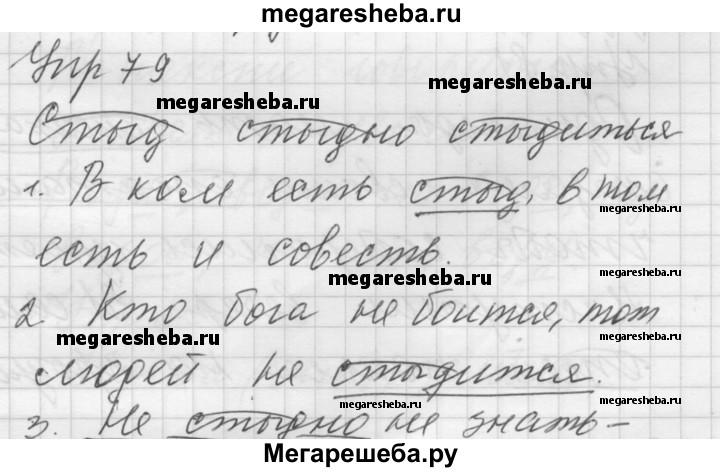 megaresheba.ru
Упр 79
megaresheba.ru
megaresheba.ru
Стыд стыдно стыдиться
1. В ком есть стыд, в том
megaresheba.ru
есть и совесть.
megaresheba.ru
megaresheba.ru
2. Кто бога не боится, тот
megaresheba.ru
людей не стыдится.
megaresheba.ru
megaresheba.ru
3. Не стыдно не знать –
Мегарешеба.ру